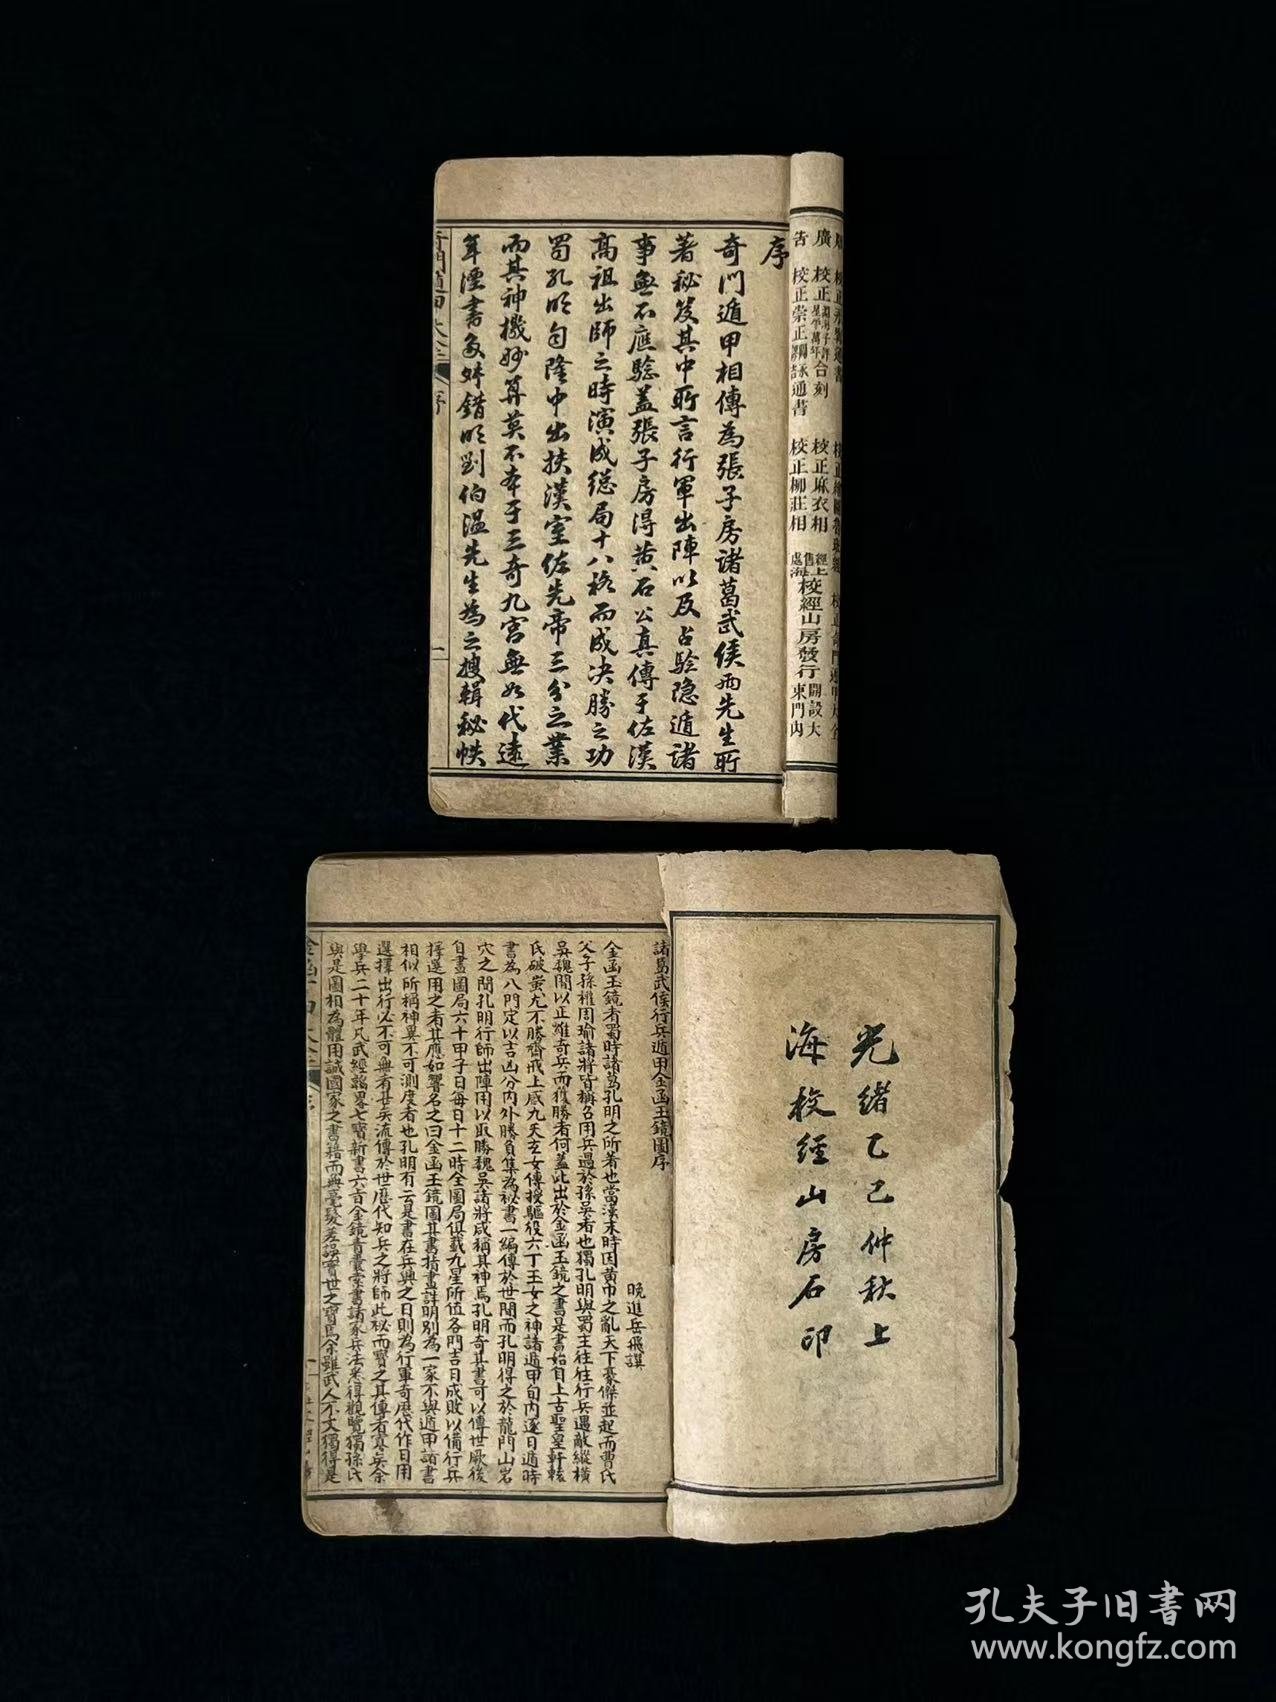 廣
告
校正
合刻
校正崇正闢謬永吉通書
校正麻衣相
校正柳莊相
校經山房發行
開設大
東門內
序
奇門遁甲相傳為張子房諸葛武侯兩先生所
著秘笈其中所言行軍出陣以及占驗隱遁諸
事無不應驗蓋張子房得黃石公真傳于佐漢
高祖出師之時演成總局十八格而成決勝之功
蜀孔明自隆中出扶漢室佐先帝三分之業
而其神機妙算莫不本于三奇九宮無如代遠
年湮書多舛錯明劉伯溫先生為之搜輯秘帙
奇門遁甲大全
序
一
光緒乙巳仲秋上
海校經山房石印
諸葛武侯行兵遁甲金函玉鏡圖序
晚進岳飛譔
金函玉鏡者蜀時諸葛孔明之所著也當漢末時因黃巾之亂天下豪傑並起而曹氏
父子孫權周瑜諸將皆稱名用兵過於孫吳者也獨孔明與蜀主往往行兵遇敵縱橫
吳魏間以正雄奇兵而獲勝者何蓋此出於金函玉鏡之書是書始自上古聖皇軒轅
氏破蚩尤不勝齋戒上感九天玄女傳授驅役六丁玉女之神諸遁甲旬內逐日遁時
書為八門定以吉凶分內外勝負集為祕書一編傳於世間而孔明得之於龍門山岩
穴之間孔明行師出陣用以取勝魏吳諸將咸稱其神焉孔明奇其書可以傳世厥後
自畫圖局六十甲子日每日十二時全圖局俱載九星所值各門吉日成敗以備行兵
擇選用之者其應如響名之曰金函玉鏡圖其書指畫詳明別為一家不與遁甲諸書
相似所稱神異不可測度者也孔明有云是書在兵興之日則為行軍奇歷代作日用
選擇出行必不可無者甚矣流傳於世歷代知兵之將師此秘而寶之其傳者寡矣余
學兵二十年凡武經韜畧七寶新書六百金鏡青囊索書諸家兵法悉得觀覽獨孫氏
與是圖相為體用誠國家之書籍而無毫髮差誤實世之寶焉余雖武人不文獨得是
孔夫子旧书网
www.kongfz.com